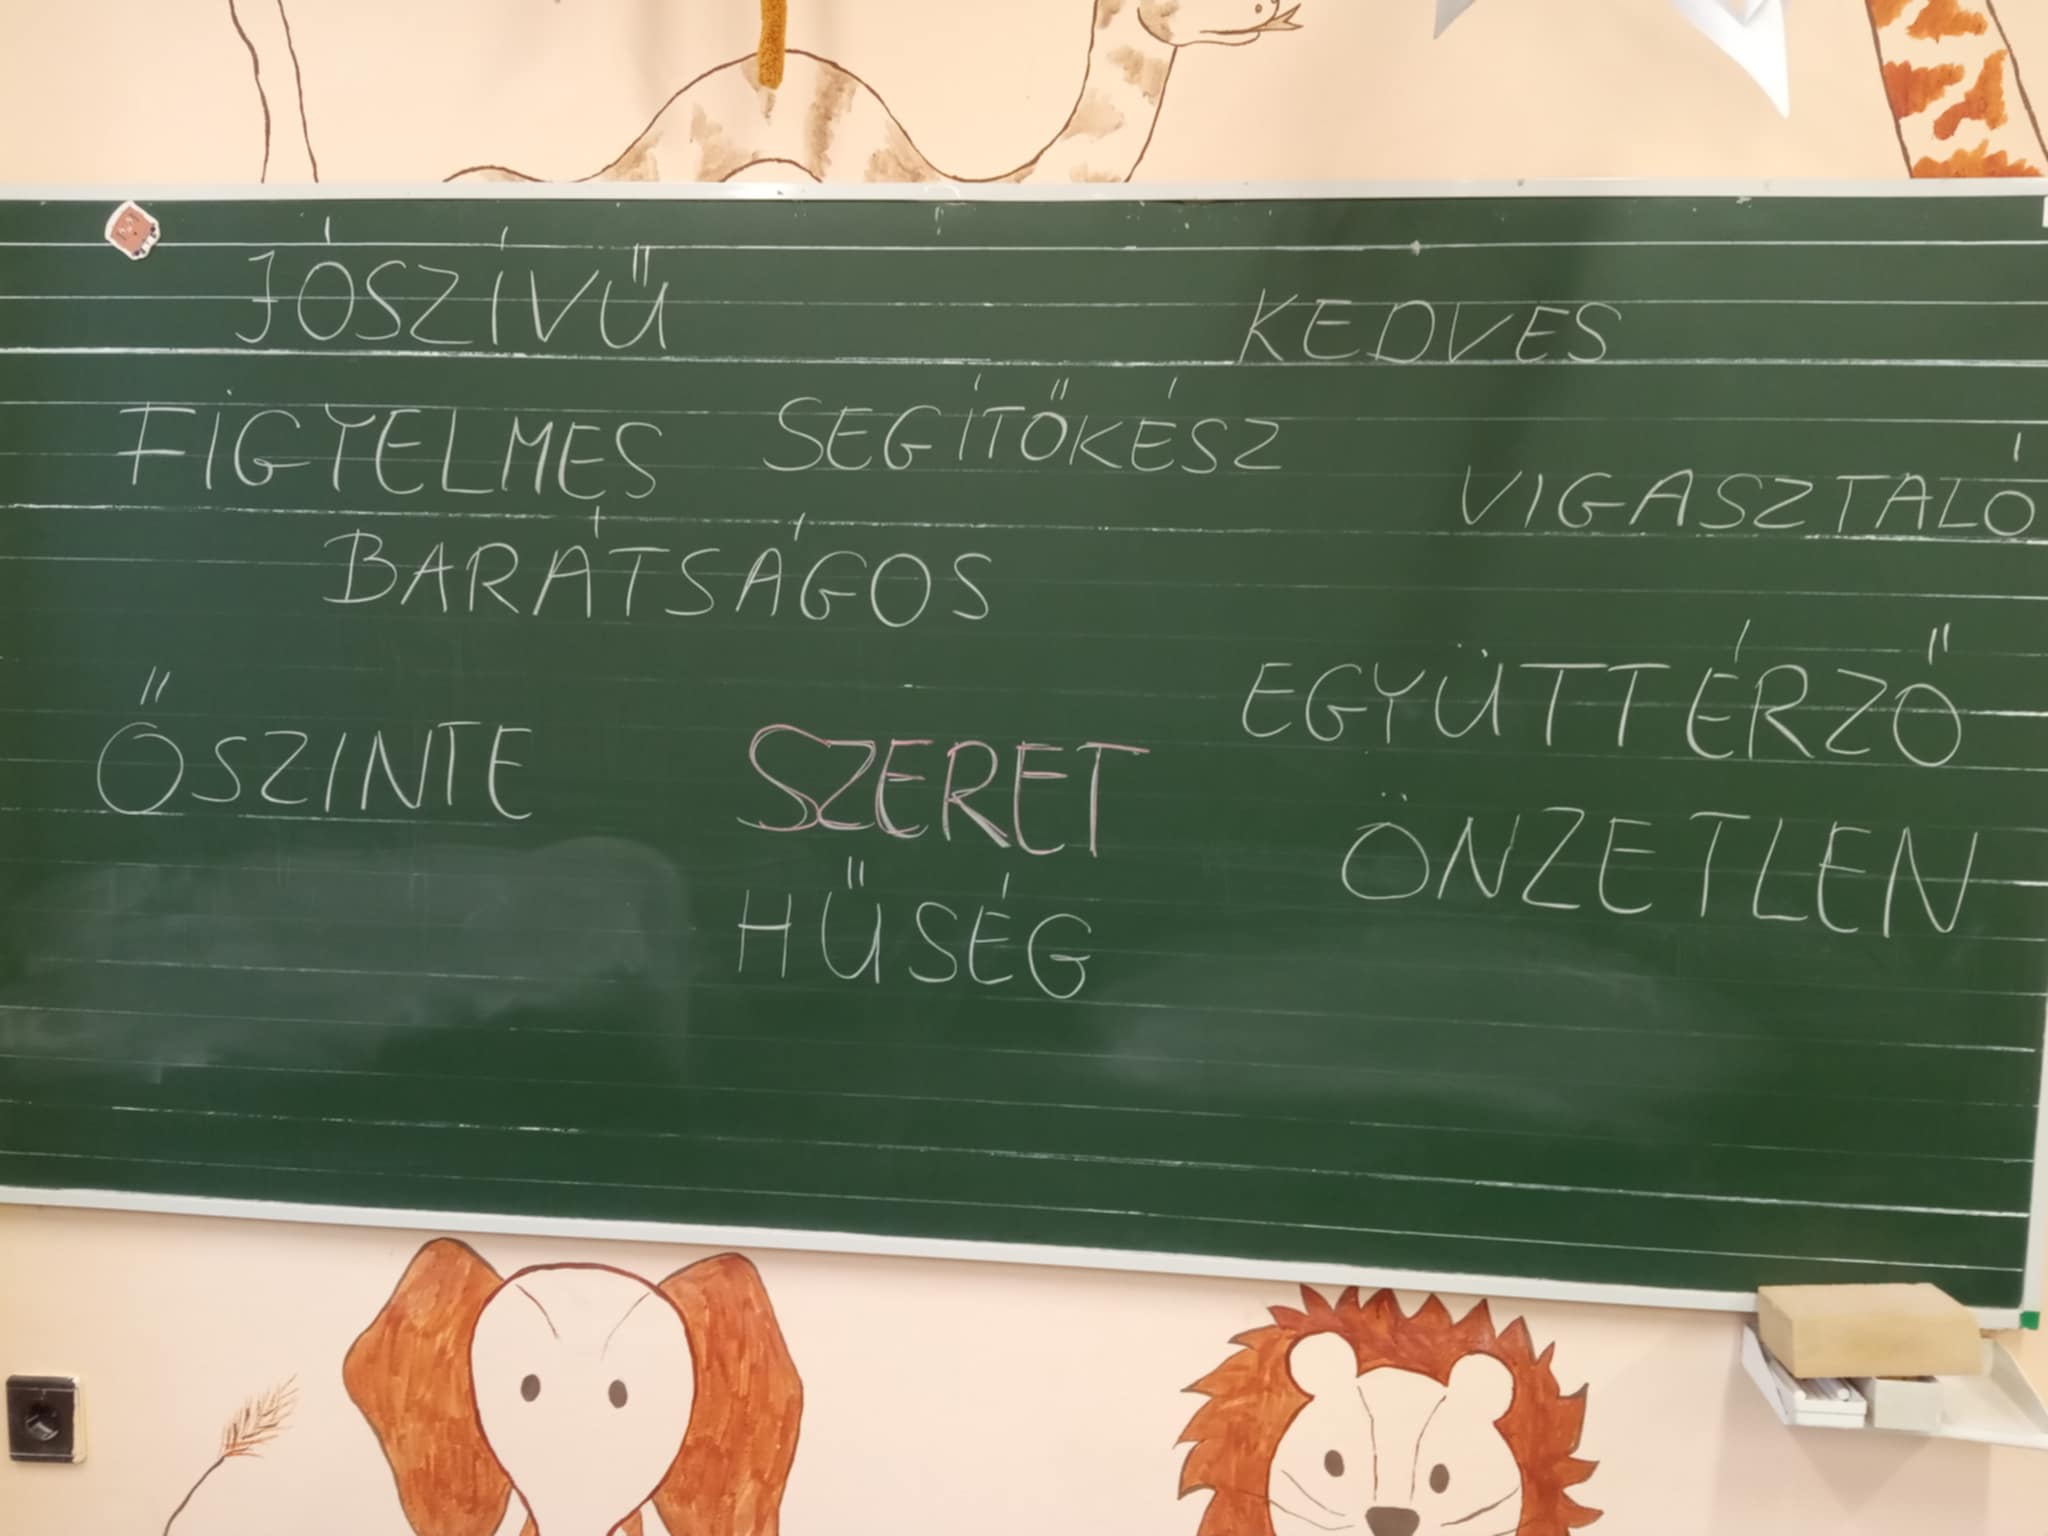 JÓSZÍVŰ
KEDVES
FIGYELMES
SEGÍTŐKÉSZ
VIGASZTALÓ
BARÁTSÁGOS
EGYÜTTÉRZŐ
ŐSZINTE
SZERET
ÖNZETLEN
HŰSÉG